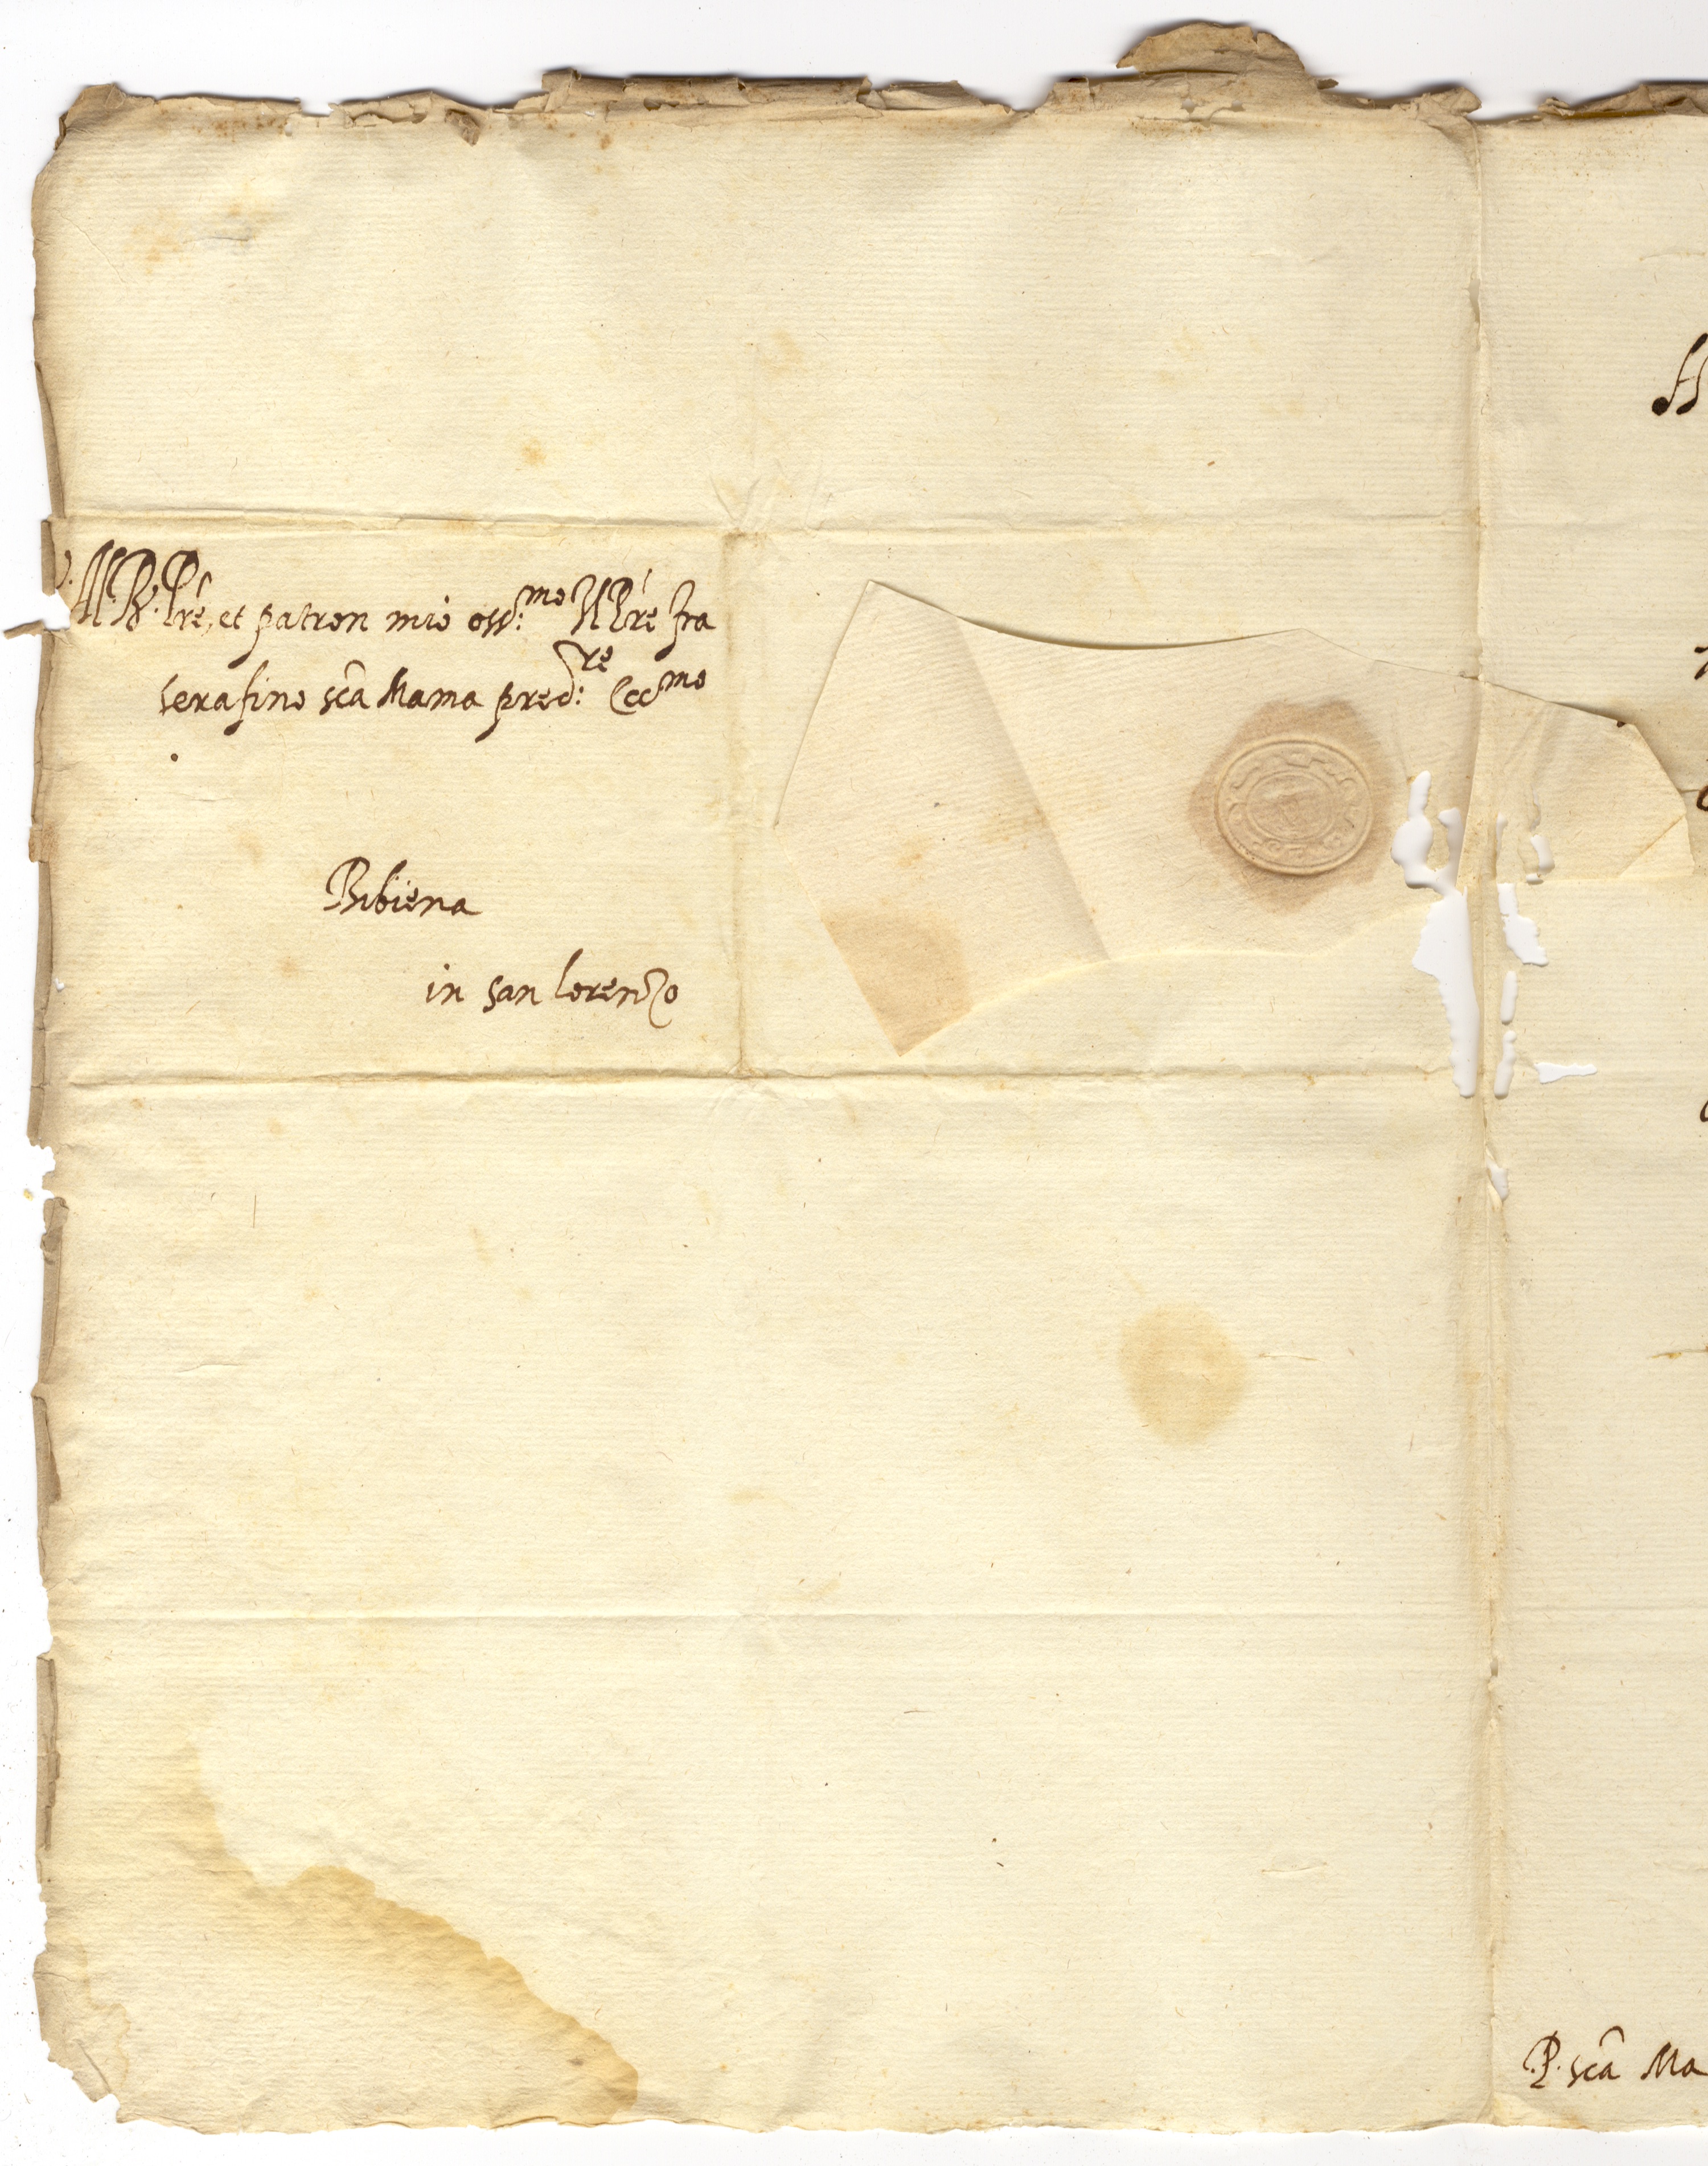 M. R. Pre, et patron mio oss:mo Il Pre fra
serafino scã Mama pred:re Eccmo
Bibiena
in san lorenzo
P. scã Ma